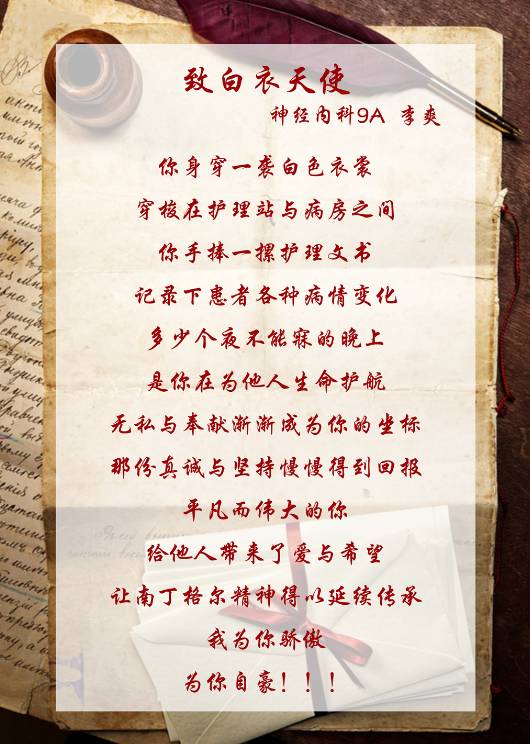 致白衣天使
神经内科9A 李爽
你身穿一袭白色衣裳
穿梭在护理站与病房之间
你手捧一摞护理文书
记录下患者各种病情变化
多少个夜不能寐的晚上
是你在为他人生命护航
无私与奉献渐渐成为你的坐标
那份真诚与坚持慢慢得到回报
平凡而伟大的你
给他人带来了爱与希望
让南丁格尔精神得以延续传承
我为你骄傲
为你自豪！！！